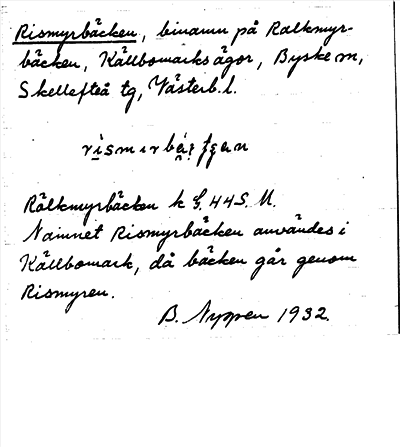 Rismyrbäcken, binamn på Rålkmyr-
bäcken, Källbomarks ägor, Byske sn,
Skellefteå tg, Västerb. l.
Rålkmyrbäcken k G. 44 S. M.
Namnet Rismyrbäcken användes i
Källbomark, då bäcken går genom
Rismyren.
B. Nyppen 1932.